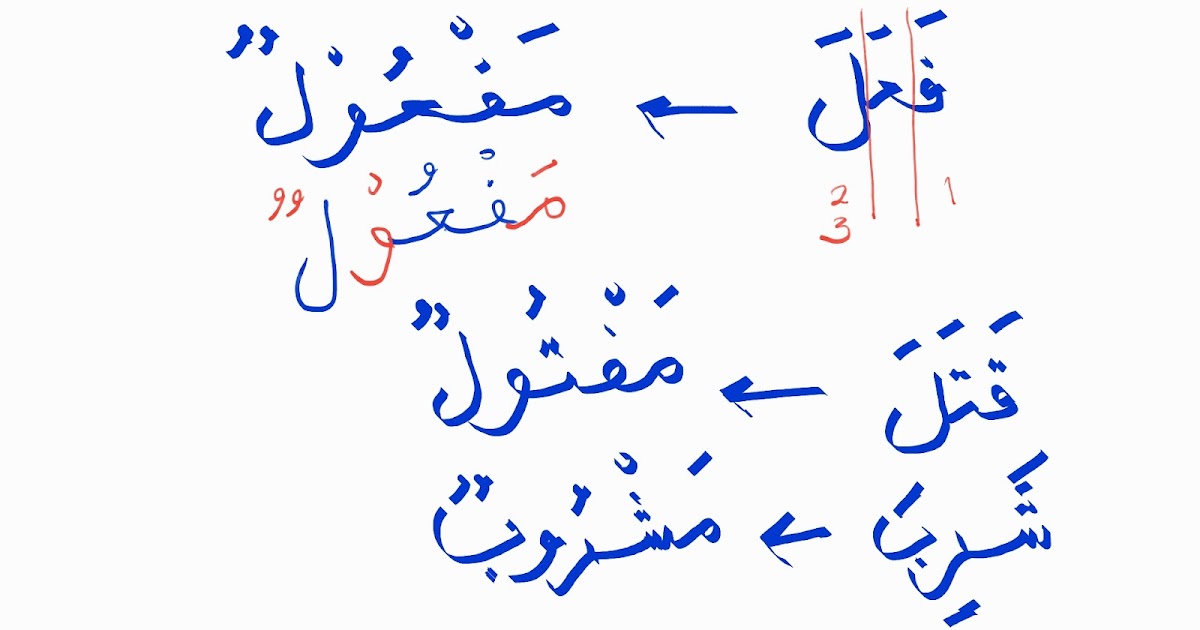 فَعَلَ ← مَفْعُوْلٌ
1 2 3
مَفْعُوْلٌ
قَتَلَ ← مَفْتُولٌ
شَرِبَ ← مَشْرُوبٌ